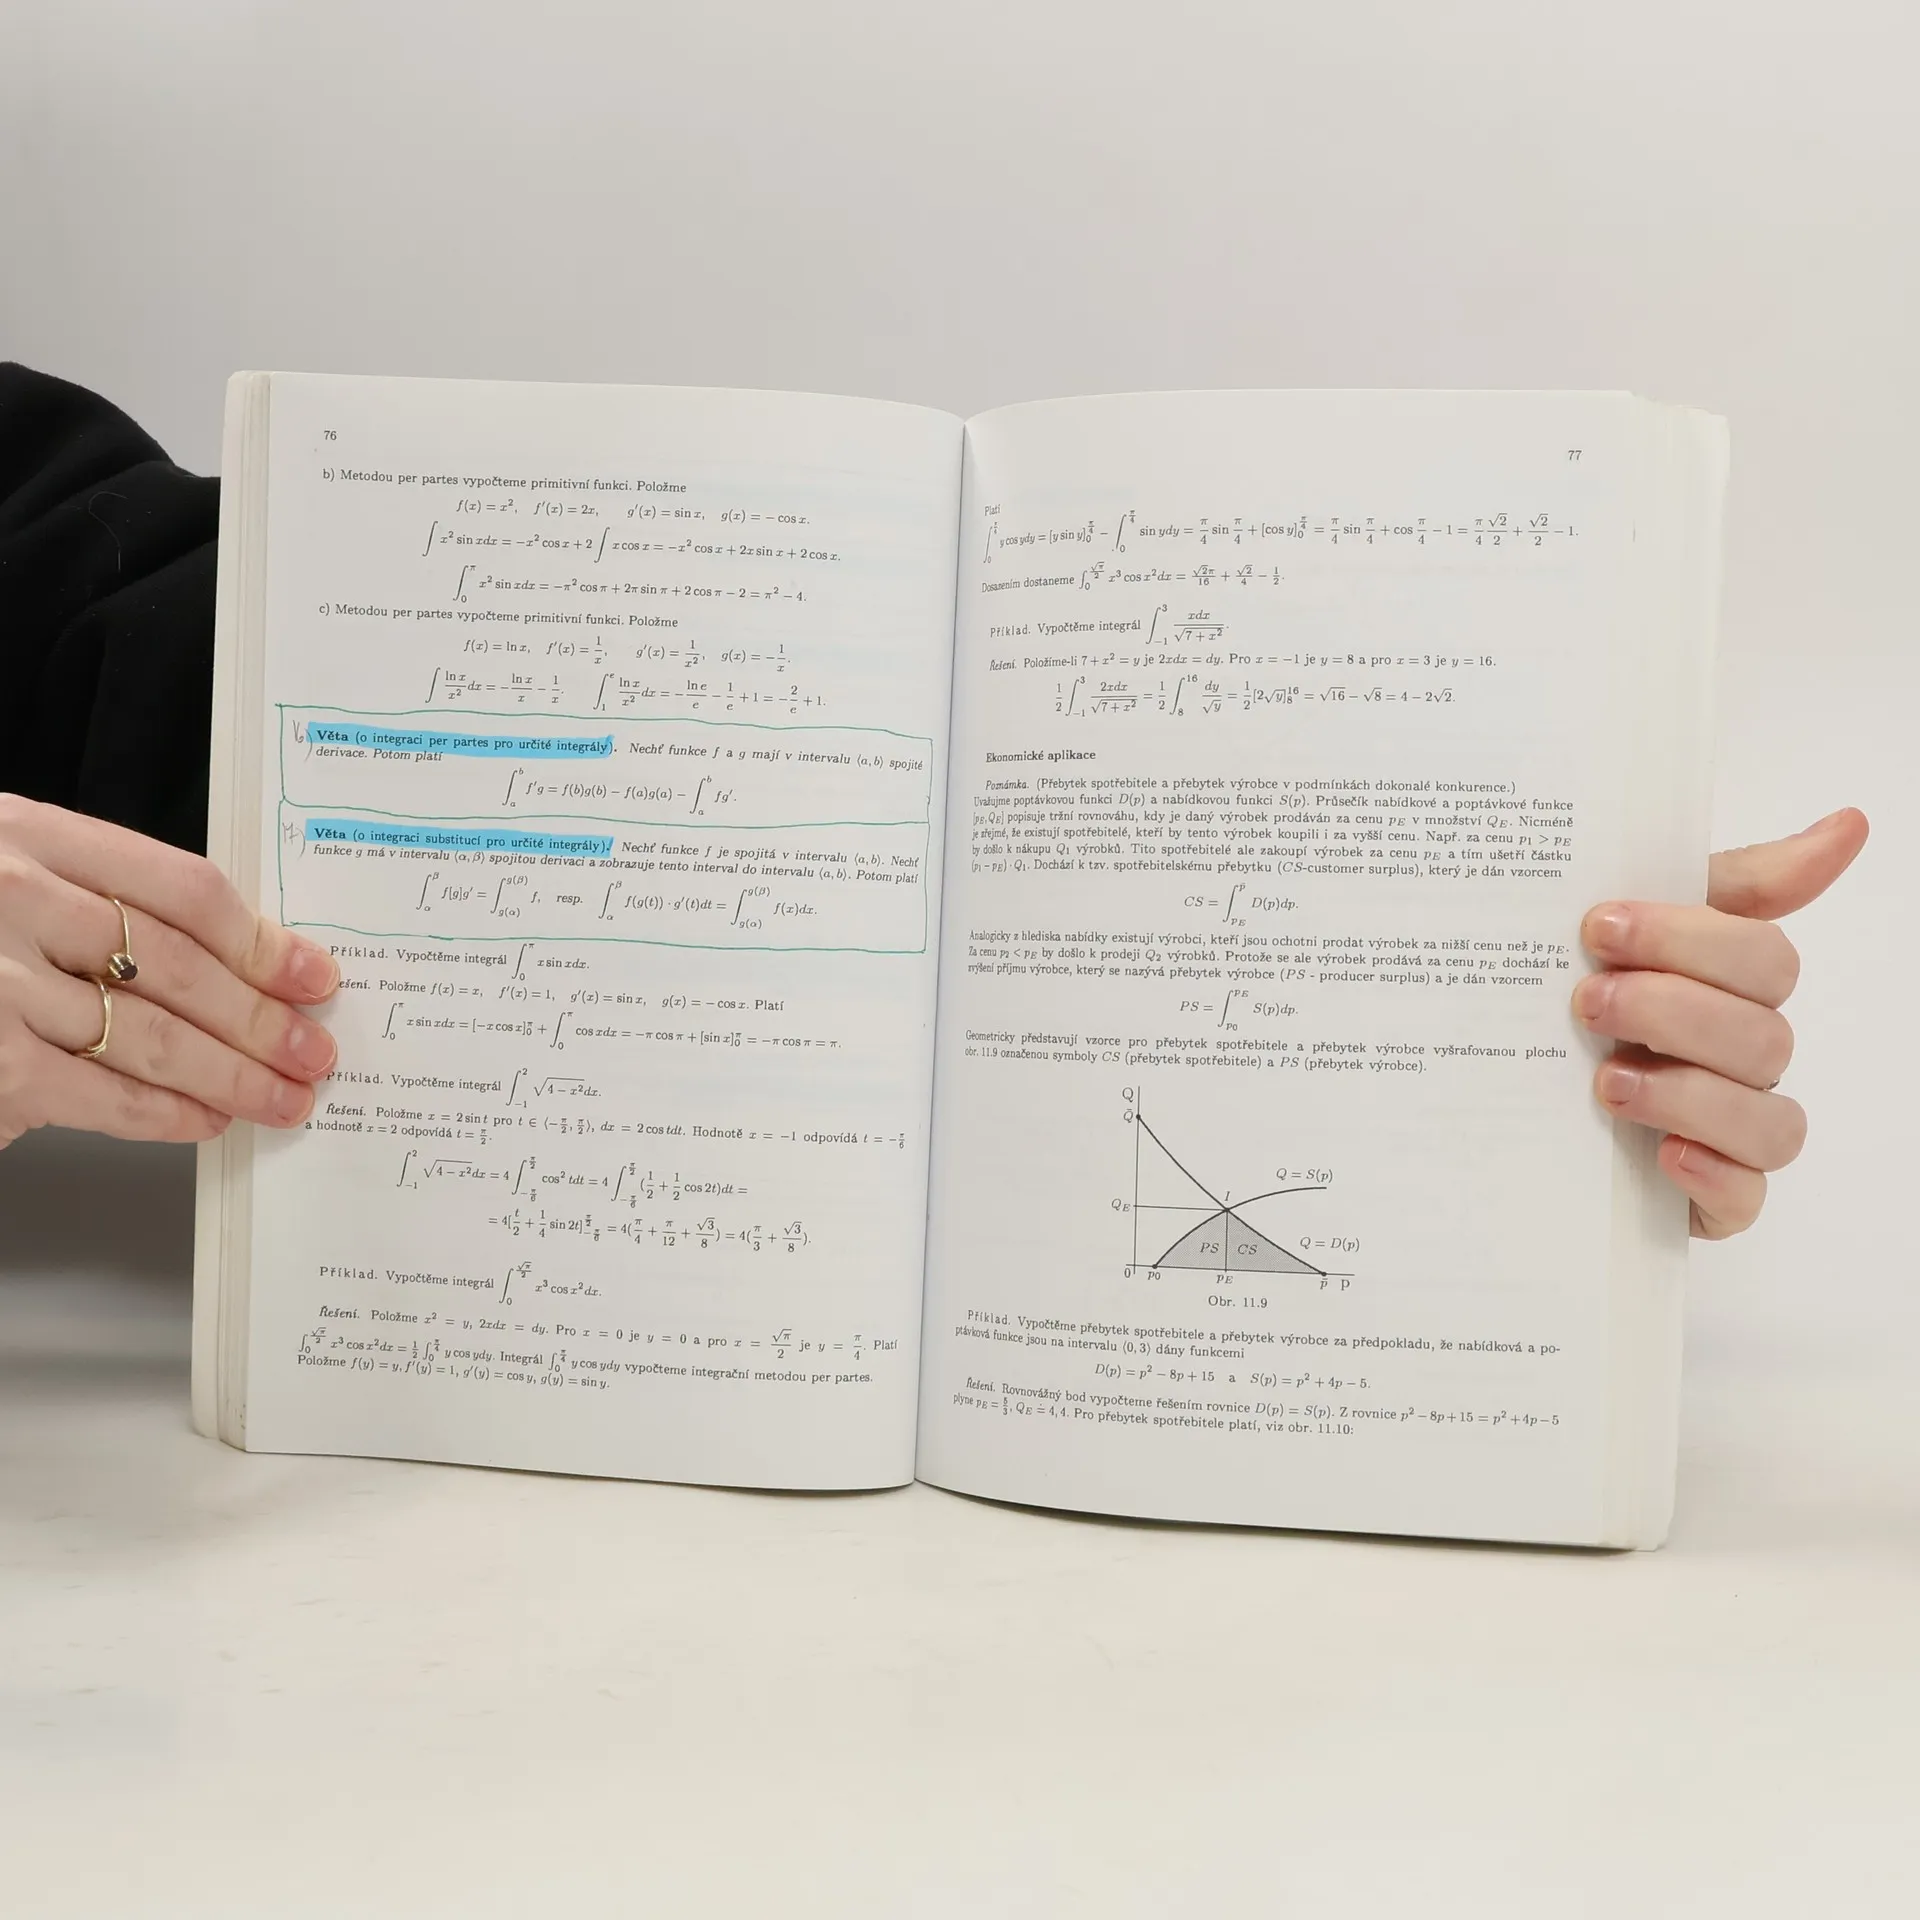 76
b) Metodou per partes vypočteme primitivní funkci. Položme
f(x) = x², f′(x) = 2x, g′(x) = sin x, g(x) = − cos x.
∫ x² sin xdx = −x² cos x + 2 ∫ x cos x = −x² cos x + 2x sin x + 2 cos x.
∫₀^π x² sin xdx = −π² cos π + 2π sin π + 2 cos π − 2 = π² − 4.
c) Metodou per partes vypočteme primitivní funkci. Položme
f(x) = ln x, f′(x) = 1/x, g′(x) = 1/x², g(x) = −1/x.
∫ ln x/x² dx = −ln x/x − 1/x. ∫₁^e ln x/x² dx = −ln e/e − 1/e + 1 = −2/e + 1.
Věta (o integraci per partes pro určité integrály). Nechť funkce f a g mají v intervalu ⟨a, b⟩ spojité
derivace. Potom platí
∫ₐ^b f′g = f(b)g(b) − f(a)g(a) − ∫ₐ^b fg′.
Věta (o integraci substitucí pro určité integrály). Nechť funkce f je spojitá v intervalu ⟨a, b⟩. Nechť
funkce g má v intervalu ⟨α, β⟩ spojitou derivaci a zobrazuje tento interval do intervalu ⟨a, b⟩. Potom platí
∫_α^β f[g]g′ = ∫_{g(α)}^{g(β)} f, resp. ∫_α^β f(g(t)) · g′(t)dt = ∫_{g(α)}^{g(β)} f(x)dx.
Příklad. Vypočtěme integrál ∫₀^π x sin xdx.
ešení. Položme f(x) = x, f′(x) = 1, g′(x) = sin x, g(x) = − cos x. Platí
∫₀^π x sin xdx = [−x cos x]₀^π + ∫₀^π cos xdx = −π cos π + [sin x]₀^π = −π cos π = π.
Příklad. Vypočtěme integrál ∫₋₁² √(4 − x²)dx.
Řešení. Položme x = 2 sin t pro t ∈ ⟨−π/2, π/2⟩, dx = 2 cos tdt. Hodnotě x = −1 odpovídá t = −π/6
a hodnotě x = 2 odpovídá t = π/2.
∫₋₁² √(4 − x²)dx = 4 ∫_{−π/6}^{π/2} cos² tdt = 4 ∫_{−π/6}^{π/2} (1/2 + 1/2 cos 2t)dt =
= 4[t/2 + 1/4 sin 2t]_{−π/6}^{π/2} = 4(π/4 + π/12 + √3/8) = 4(π/3 + √3/8).
Příklad. Vypočtěme integrál ∫₀^{√π/2} x³ cos x²dx.
Řešení. Položme x² = y, 2xdx = dy. Pro x = 0 je y = 0 a pro x = √π/2 je y = π/4. Platí
∫₀^{√π/2} x³ cos x²dx = 1/2 ∫₀^{π/4} y cos ydy. Integrál ∫₀^{π/4} y cos ydy vypočteme integrační metodou per partes.
Položme f(y) = y, f′(y) = 1, g′(y) = cos y, g(y) = sin y.
77
Platí
∫₀^{π/4} y cos ydy = [y sin y]₀^{π/4} − ∫₀^{π/4} sin ydy = π/4 sin π/4 + [cos y]₀^{π/4} = π/4 sin π/4 + cos π/4 − 1 = π/4 √2/2 + √2/2 − 1.
Dosazením dostaneme ∫₀^{√π/2} x³ cos x²dx = √2π/16 + √2/4 − 1/2.
Příklad. Vypočtěme integrál ∫₋₁³ xdx/√(7 + x²).
Řešení. Položíme-li 7 + x² = y je 2xdx = dy. Pro x = −1 je y = 8 a pro x = 3 je y = 16.
1/2 ∫₋₁³ 2xdx/√(7 + x²) = 1/2 ∫₈¹⁶ dy/√y = 1/2[2√y]₈¹⁶ = √16 − √8 = 4 − 2√2.
Ekonomické aplikace
Poznámka. (Přebytek spotřebitele a přebytek výrobce v podmínkách dokonalé konkurence.)
Uvažujme poptávkovou funkci D(p) a nabídkovou funkci S(p). Průsečík nabídkové a poptávkové funkce
[pE, QE] popisuje tržní rovnováhu, kdy je daný výrobek prodáván za cenu pE v množství QE. Nicméně
je zřejmé, že existují spotřebitelé, kteří by tento výrobek koupili i za vyšší cenu. Např. za cenu p₁ > pE
by došlo k nákupu Q₁ výrobků. Tito spotřebitelé ale zakoupí výrobek za cenu pE a tím ušetří částku
(p₁ − pE) · Q₁. Dochází k tzv. spotřebitelskému přebytku (CS-customer surplus), který je dán vzorcem
CS = ∫_{pE}^{p̄} D(p)dp.
Analogicky z hlediska nabídky existují výrobci, kteří jsou ochotni prodat výrobek za nižší cenu než je pE.
Za cenu p₂ < pE by došlo k prodeji Q₂ výrobků. Protože se ale výrobek prodává za cenu pE dochází ke
zvýšení příjmu výrobce, který se nazývá přebytek výrobce (PS - producer surplus) a je dán vzorcem
PS = ∫_{p0}^{pE} S(p)dp.
Geometricky představují vzorce pro přebytek spotřebitele a přebytek výrobce vyšrafovanou plochu
obr. 11.9 označenou symboly CS (přebytek spotřebitele) a PS (přebytek výrobce).
Q
Q̄
Q = S(p)
I
QE
Q = D(p)
PS CS
0 p0 pE p̄ p
Obr. 11.9
Příklad. Vypočtěme přebytek spotřebitele a přebytek výrobce za předpokladu, že nabídková a po-
ptávková funkce jsou na intervalu ⟨0, 3⟩ dány funkcemi
D(p) = p² − 8p + 15 a S(p) = p² + 4p − 5.
Řešení. Rovnovážný bod vypočteme řešením rovnice D(p) = S(p). Z rovnice p² − 8p + 15 = p² + 4p − 5
plyne pE = 5/3, QE ≐ 4, 4. Pro přebytek spotřebitele platí, viz obr. 11.10: